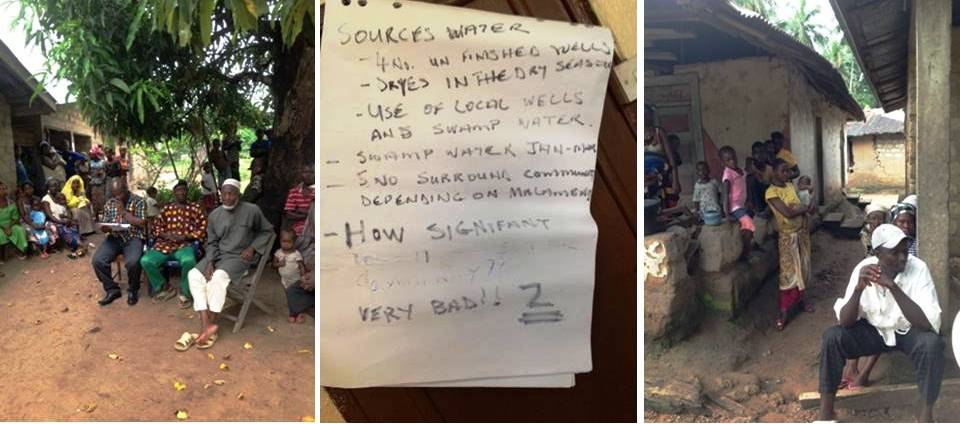 SOURCES WATER
- 4 No. UN FINISHED WELLS
- DRYES IN THE DRY SEASON
- USE OF LOCAL WELLS
AND SWAMP WATER.
- SWAMP WATER JAN-MA
- 5 NO SURROUND COMMUNIT
DEPENDING ON
- HOW SIGNIFANT
VERY BAD!! 2